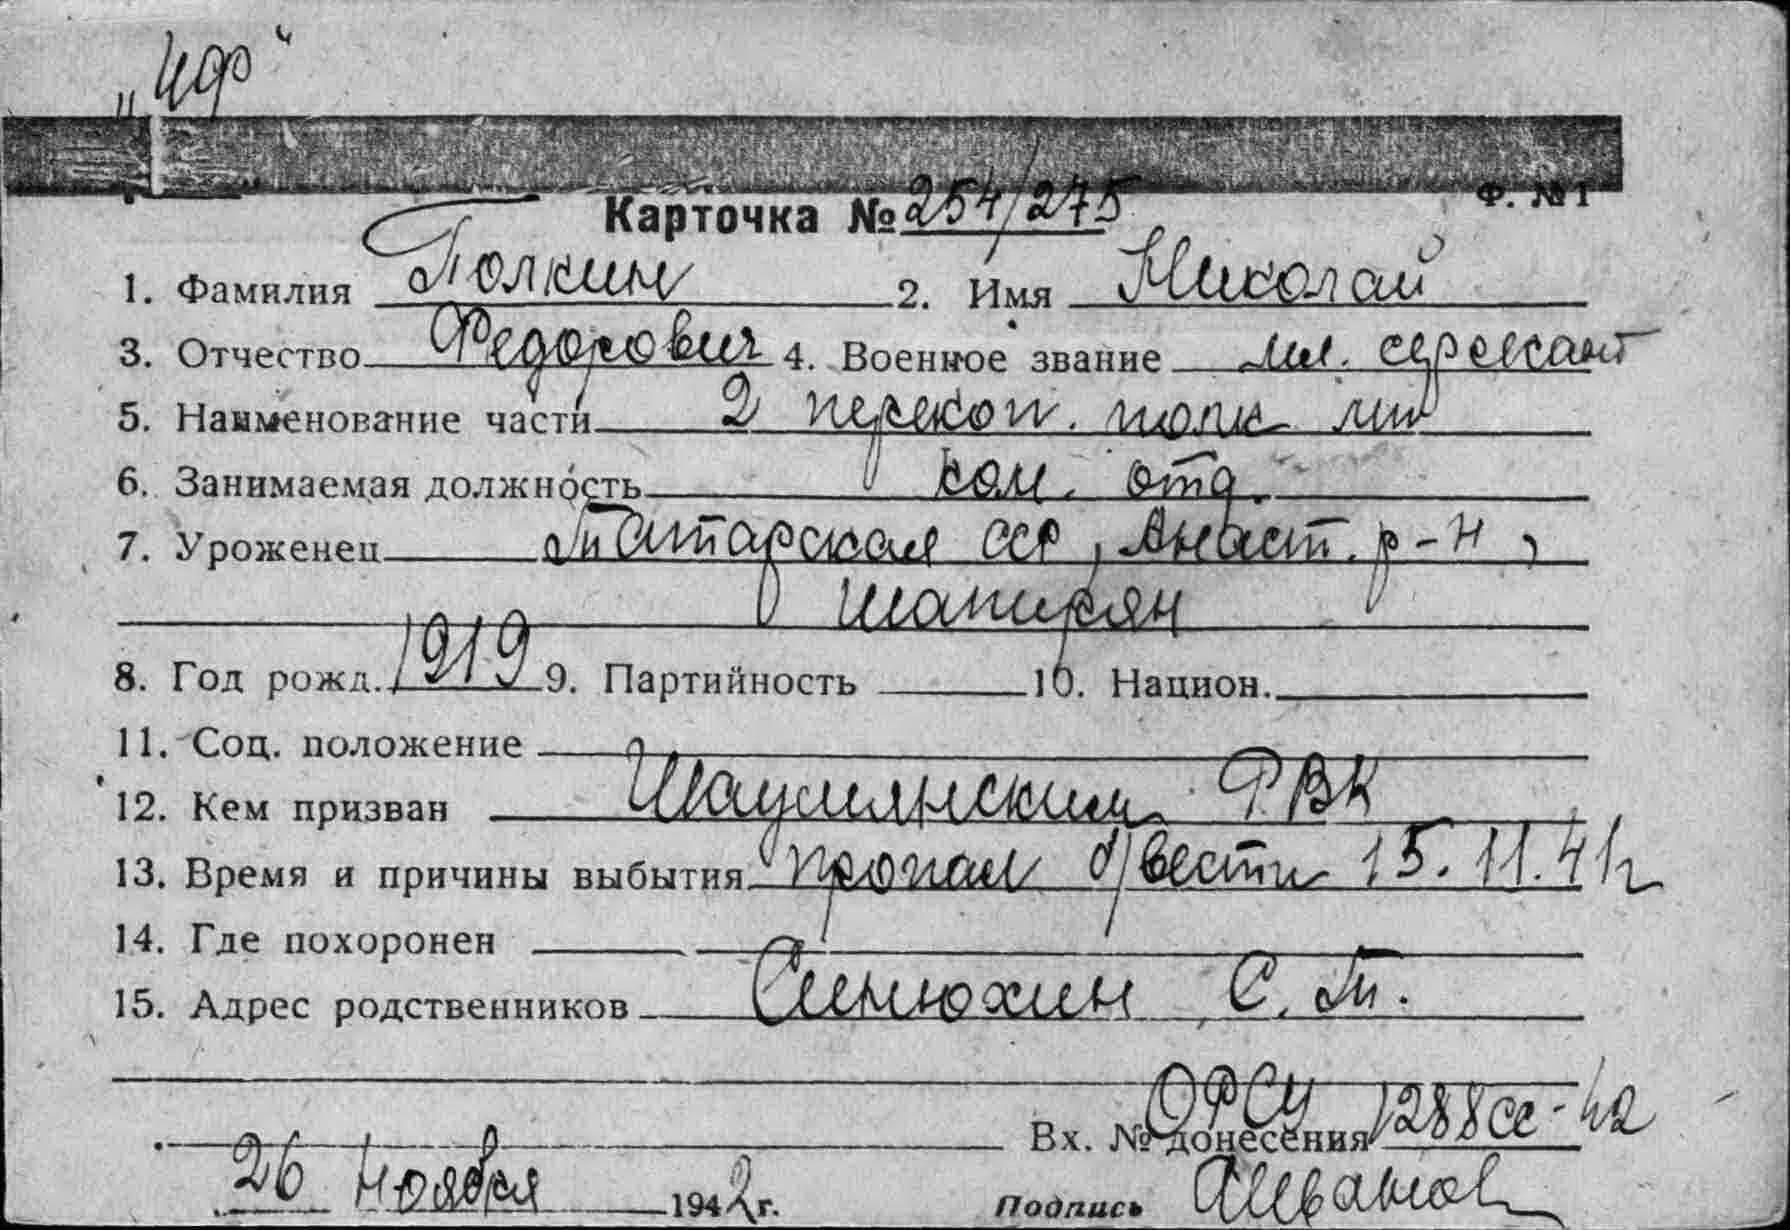 „ЧФ“
Ф. №1
Карточка № 254/275
1. Фамилия Полкин 2. Имя Николай
3. Отчество Федорович 4. Военное звание мл. сержант
5. Наименование части 2 перекоп. полк мп
6. Занимаемая должность ком. отд.
7. Уроженец Татарская ССР, Анаст. р-н,
Шапирян
8. Год рожд. 1919 9. Партийность 10. Национ.
11. Соц. положение
12. Кем призван Шаумянским РВК
13. Время и причины выбытия пропал б/вести 15.11.41г
14. Где похоронен
15. Адрес родственников Синюхин С. Т.
ОРСУ
Вх. № донесения 1288сс-42
26 Ноября 1942г. Подпись АИванов